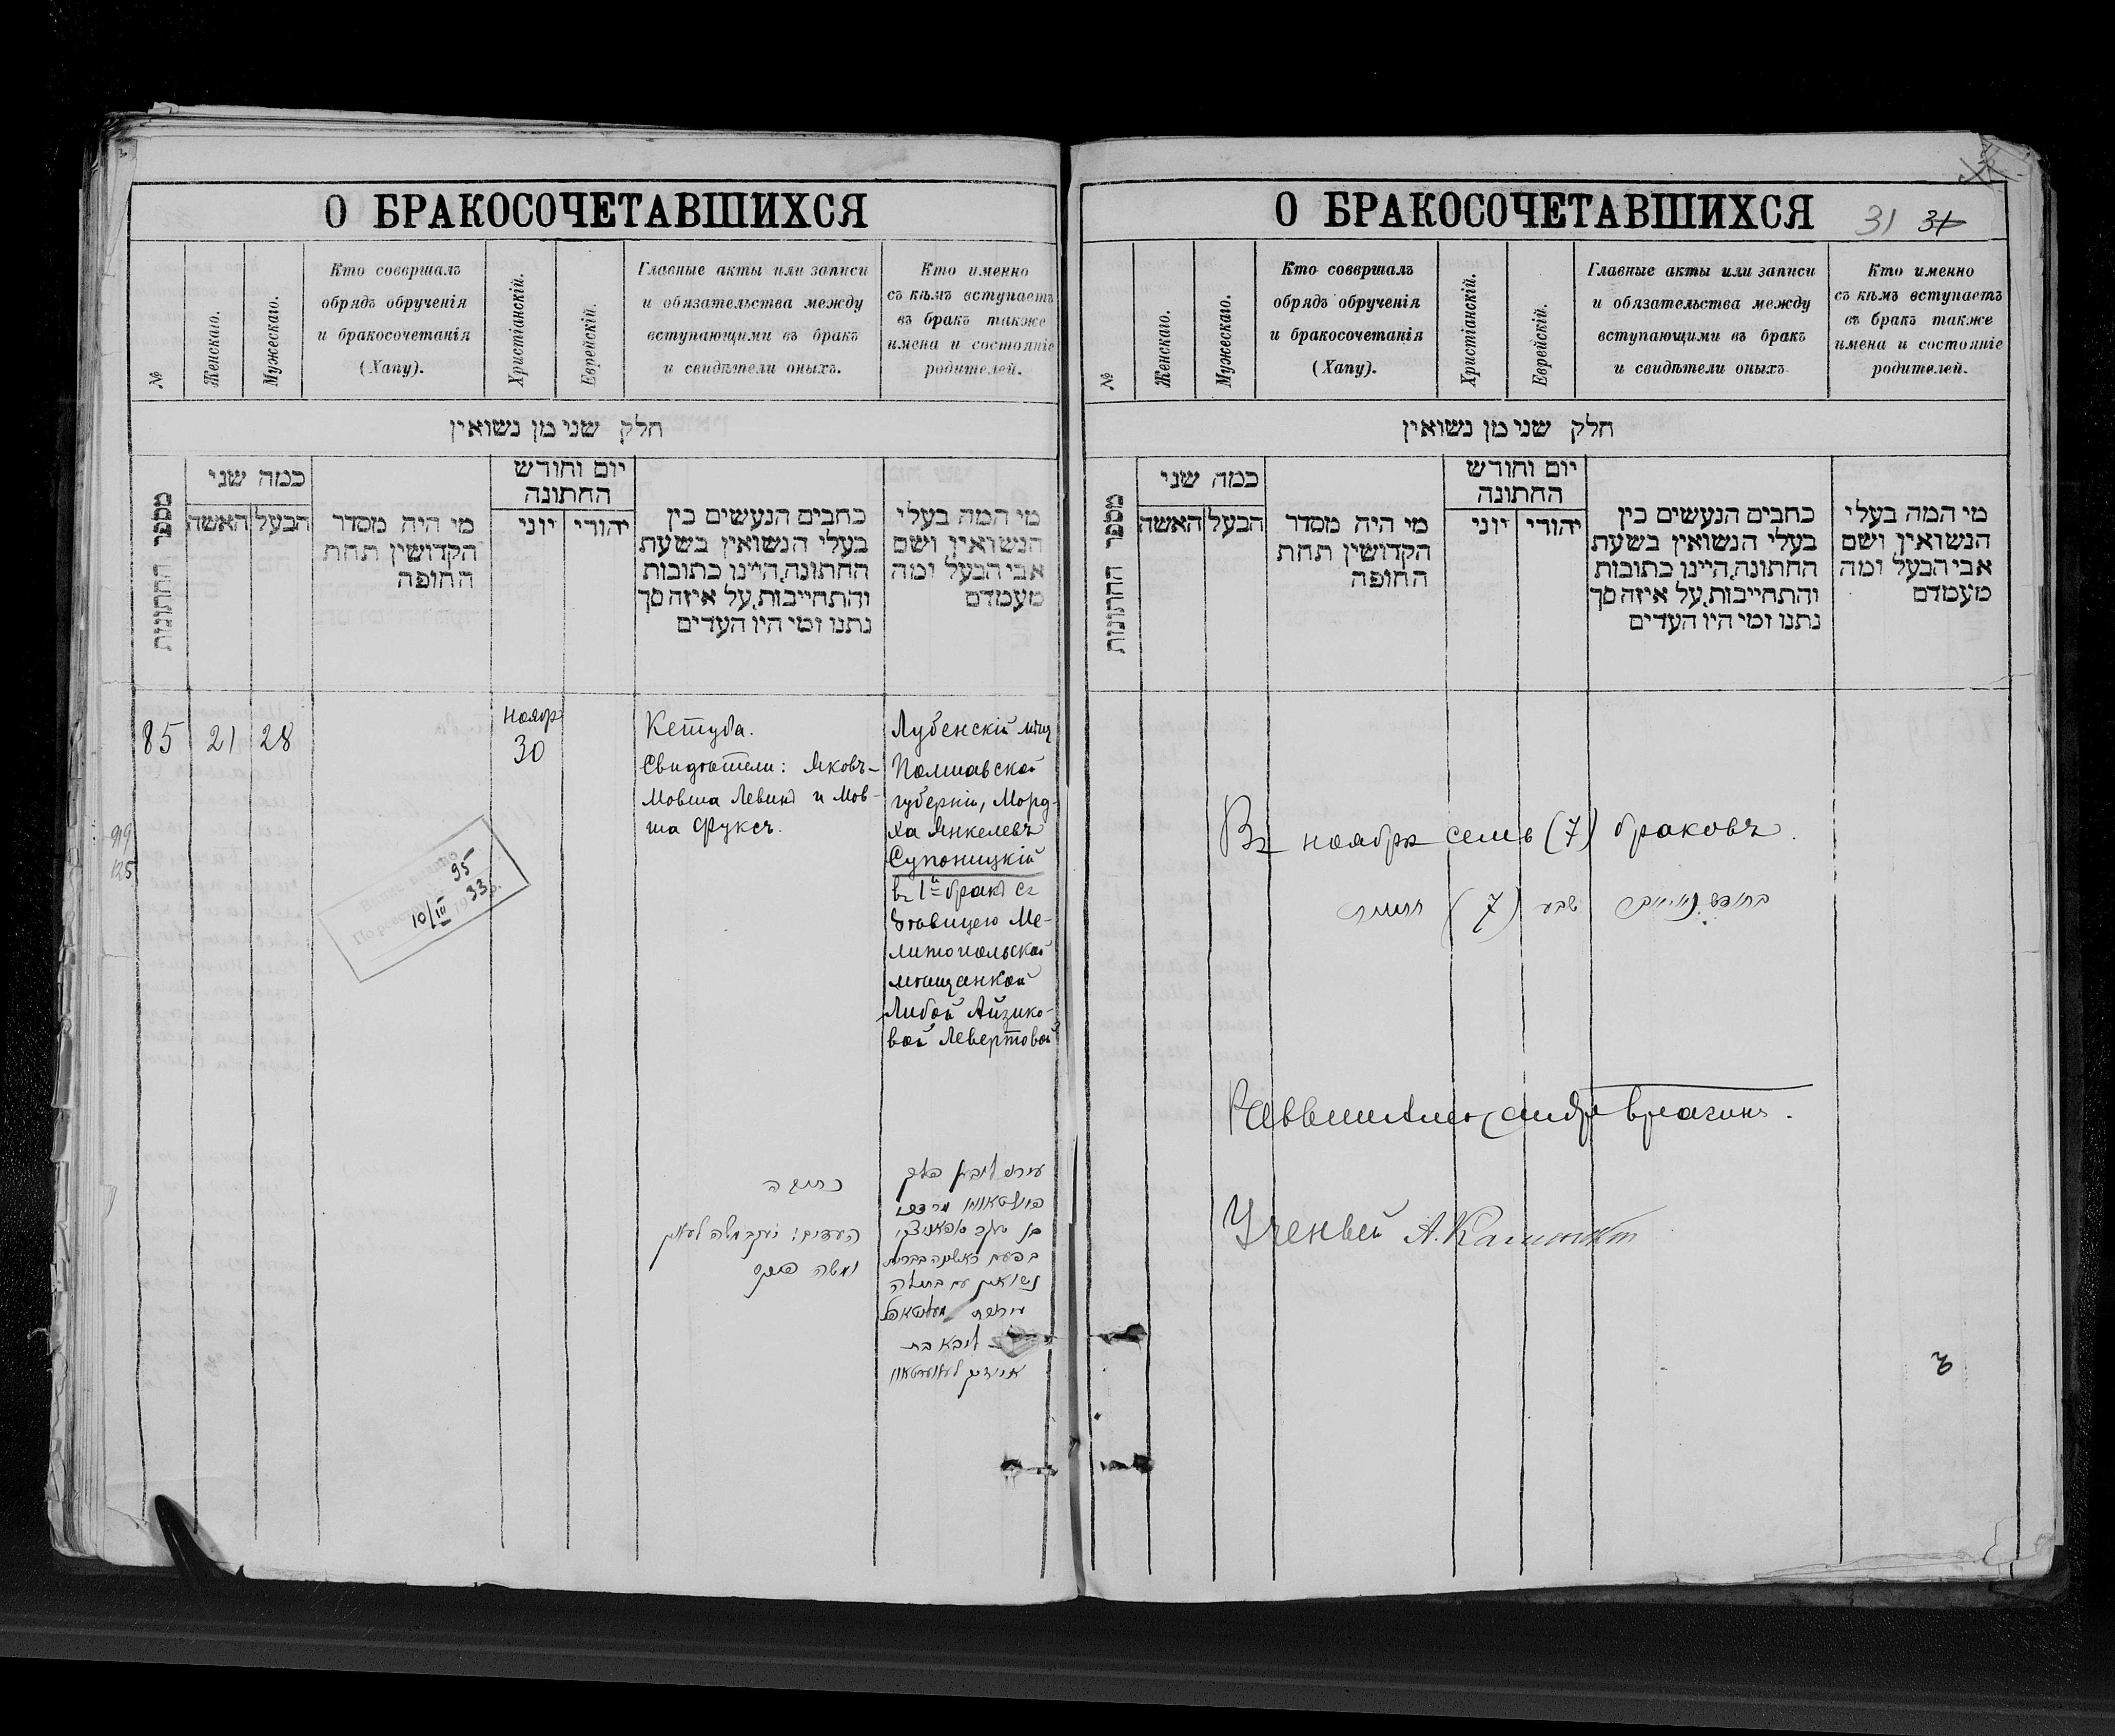 О БРАКОСОЧЕТАВШИХСЯ
№
Женскаго.
Мужескаго.
Кто совершалъ
обрядъ обрученія
и бракосочетанія
(Хапу).
Христіанскій.
Еврейскій.
Главные акты или записи
и обязательства между
вступающими въ бракъ
и свидѣтели оныхъ.
Кто именно
съ кѣмъ вступаетъ
въ бракъ также
имена и состояніе
родителей.
חלק שני מן נשואין
מספר החתונות
כמה שני
האשה
הבעל
מי היה מסדר
הקדושין תחת
החופה
יום וחודש
החתונה
יוני
יהודי
כתבים הנעשים בין
בעלי הנשואין בשעת
החתונה, היינו כתובות
והתחייבות, על איזה סך
נתנו ומי היו העדים
מי המה בעלי
הנשואין ושם
אבי הבעל ומה
מעמדם
85
21
28
Ноябр
30
Кетуба.
Свидѣтели: Яковъ-
Мовша Левинъ и Мов-
ша Фуксъ.
Лубенскій мѣщ
Полтавской
губерніи, Морд-
ха Янкелевъ
Супоницкій
въ 1й бракъ съ
дѣвицею Ме-
литопольской
мѣщанкой
Либой Айзико-
вой Левертовой
919
125
95
10/III 1933
כתובה
העדים: יעקב משה לעווין
ומשה פוקס
בן יעקב סופאניצקי
בפעם ראשונה בברית
נשואין עם בתולה
ליבא בת
אייזיק לעווערטאוו
О БРАКОСОЧЕТАВШИХСЯ
31 31
№
Женскаго.
Мужескаго.
Кто совершалъ
обрядъ обрученія
и бракосочетанія
(Хапу).
Христіанскій.
Еврейскій.
Главные акты или записи
и обязательства между
вступающими въ бракъ
и свидѣтели оныхъ.
Кто именно
съ кѣмъ вступаетъ
въ бракъ также
имена и состояніе
родителей.
חלק שני מן נשואין
מספר החתונות
כמה שני
האשה
הבעל
מי היה מסדר
הקדושין תחת
החופה
יום וחודש
החתונה
יוני
יהודי
כתבים הנעשים בין
בעלי הנשואין בשעת
החתונה, היינו כתובות
והתחייבות, על איזה סך
נתנו ומי היו העדים
מי המה בעלי
הנשואין ושם
אבי הבעל ומה
מעמדם
Въ ноябрѣ семь (7) браковъ.
בחודש שבע (7) חתונות
Ученый А.